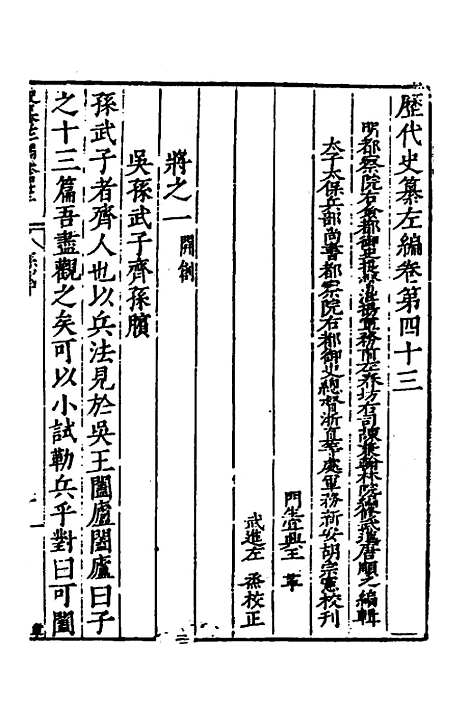 歷代史纂左編卷第四十三
明都察院右僉都御史提督淮揚軍務前左春坊右司諫兼翰林院編修武進唐順之編輯
太子太保兵部尚書都察院右都御史總督浙直等處軍務新安胡宗憲校刊
門生宜興王革
武進左烝校正
將之一 開創
吳孫武子齊孫臏
孫武子者齊人也以兵法見於吳王闔廬闔廬曰子
之十三篇吾盡觀之矣可以小試勒兵乎對曰可闔